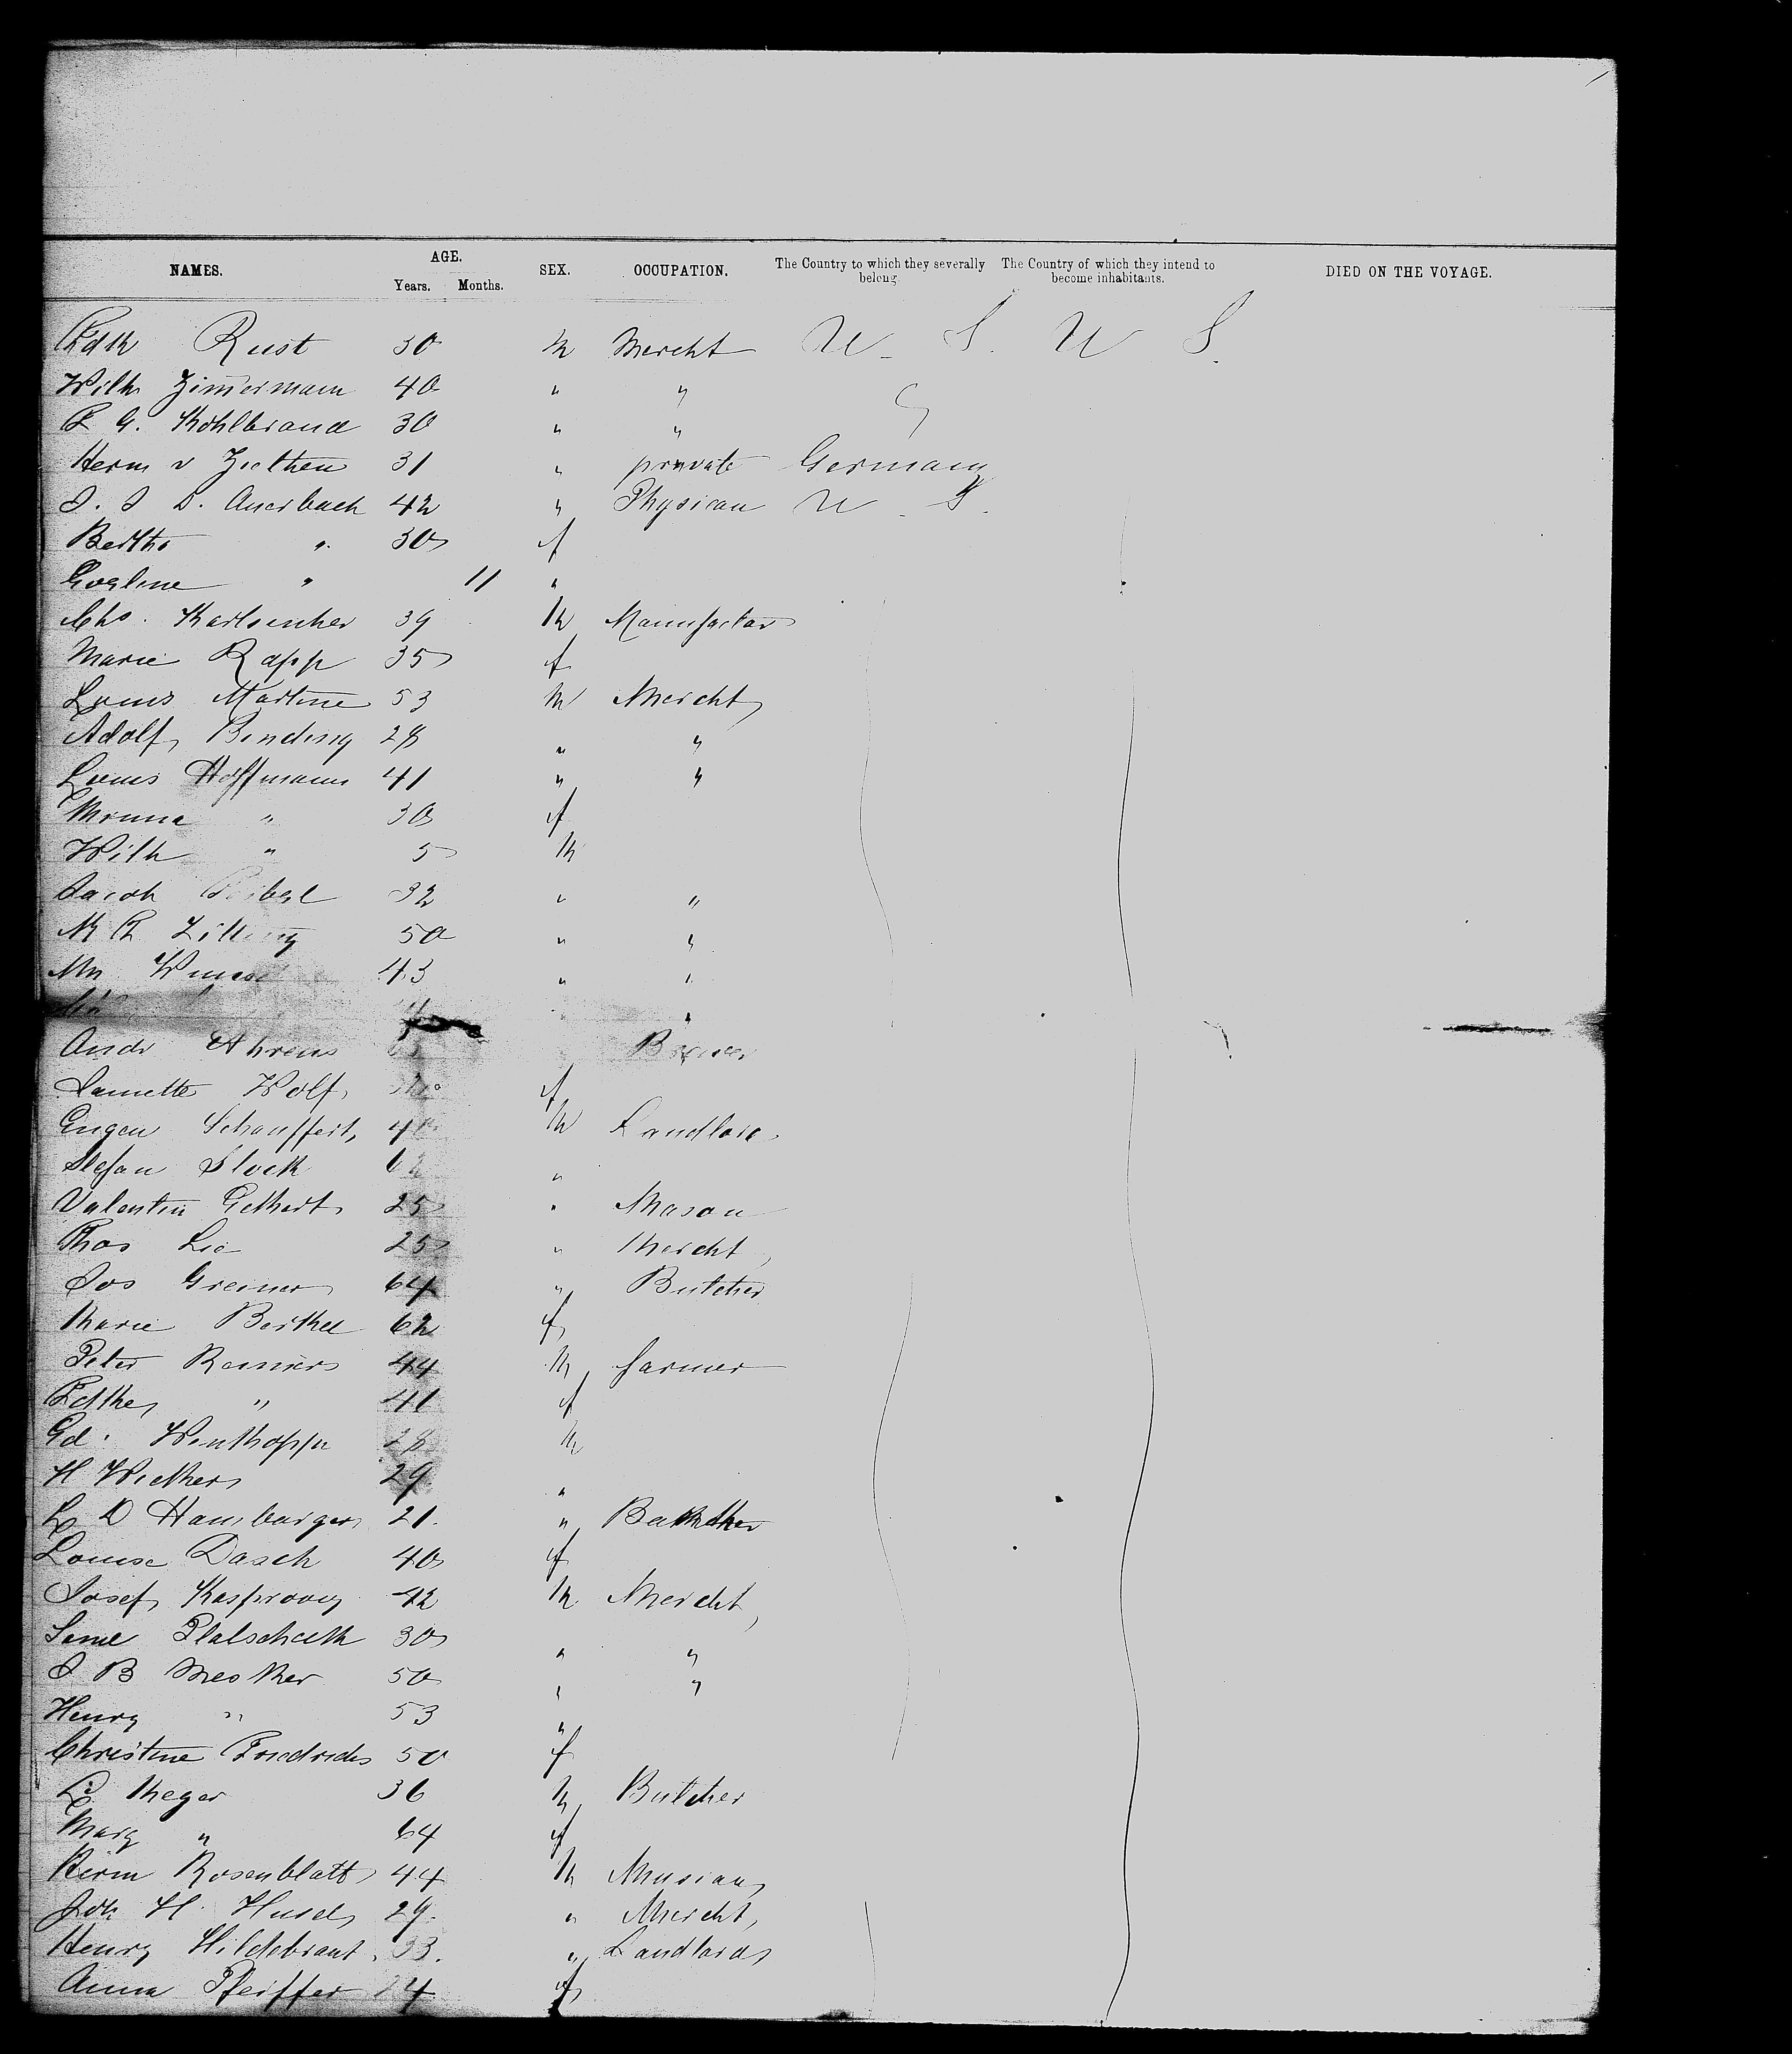 NAMES. AGE. SEX. OCCUPATION. The Country to which they severally belong. The Country of which they intend to become inhabitants. DIED ON THE VOYAGE.
Years. Months.
Rust 30 m Mercht U. S. U S.
Wilh Zimermann 40 " "
F G. Kohlbrand 30 " "
Herm v Zielhen 31 " private Germany
J. J D. Auerbach 42 " Physican U. S.
Bertha " 30 f
" 11 "
Chs. 39 m Manufactor
Marie Rapp 35 f
Louis Martine 53 m Mercht
Adolf Binding 28 " "
Louis Hoffmann 41 " "
Minna " 30 f
Wilh " 5 m
Jacob 32 " "
50 " "
43 " "
"
Andr Ahrens
Wolf f
Eugen Schauffert m Landlord
Stefan Stock "
Valentin Gethart 25 " Mason
Thos 25 " Mercht
Jos Greiner 64 " Butcher
Marie Berthel 62 f
Peter Reiners 44 m farmer
" 41 f
Ed. Winkhopp 28 m
H Wickers 29 "
L D Hamburger 21. "
Louise Dasch 40 f
Josef Kasprovig 42 m Mercht
30 " "
J B Mesker 50 " "
Henry " 53 "
Christine Friedrichs 50 f
L Meyer 36 m Butcher
Marg " 64 f
Herm Rosenblatt 44 m Musican
Joh H. 29. " Mercht
Henry Hildebrant 33. " Landlord
Anna Pfeiffer f